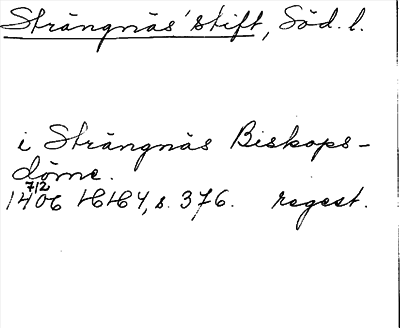 Strängnäs stift, Söd. l.
i Strängnäs Biskops-
döme.
7/2
1406 HHH4, s. 376. regest.